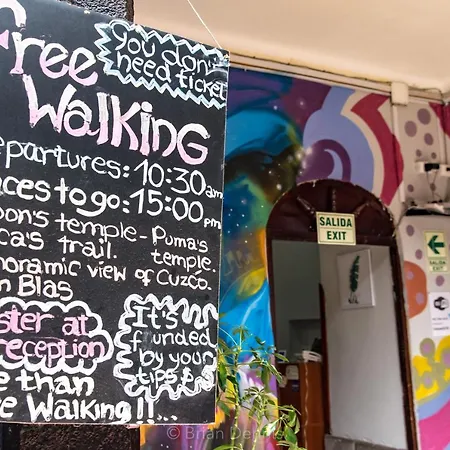 Free
you don't
need ticket
Walking
epartures: 10:30am
aces to go: 15:00pm
oon's temple - Puma's
ca's trail. temple.
noramic view of Cuzco.
n Blas
ster at
reception
It's
founded
by your
tips $
re than
ee Walking!!...
SALIDA
EXIT
SALIDA
EXIT